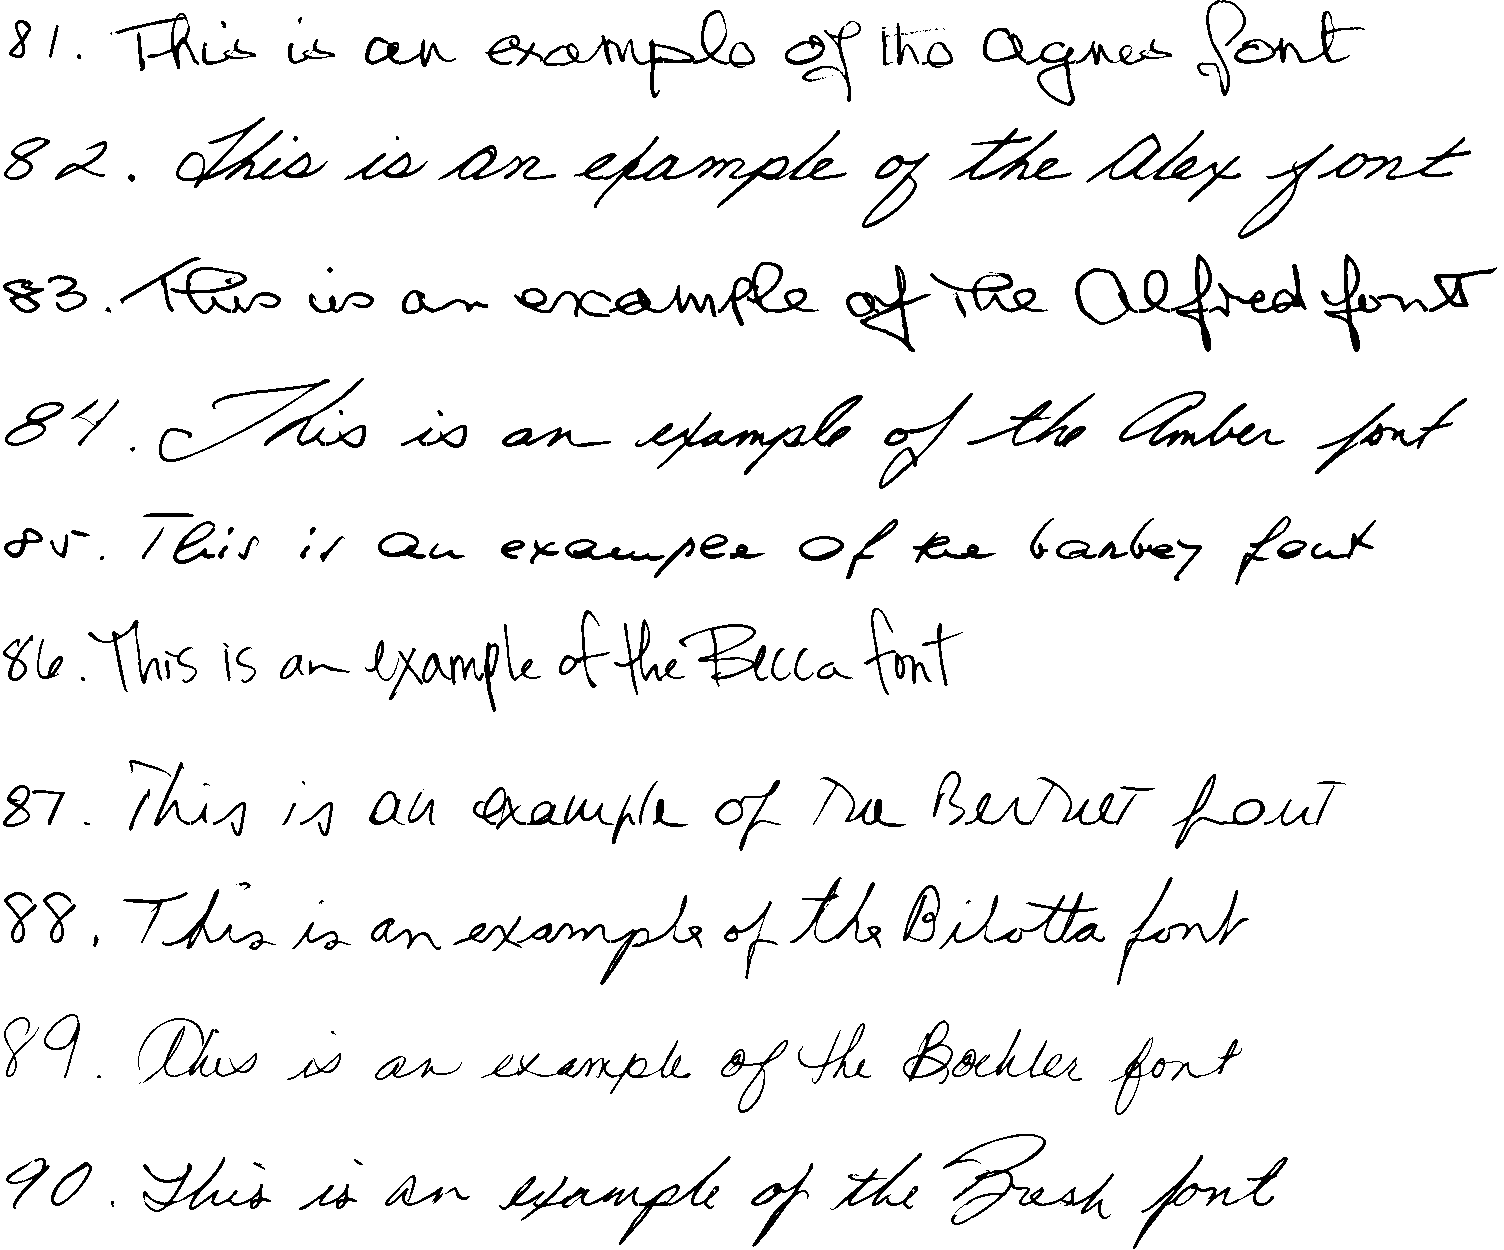 81. This is an example of the Agnes font
82. This is an example of the Alex font
83. This is an example of the Alfred font
84. This is an example of the Amber font
85. This is an example of the barbey font
86. This is an example of the Becca font
87. This is an example of the Bernet font
88. This is an example of the Bilotta font
89. This is an example of the Boehler font
90. This is an example of the Brash font